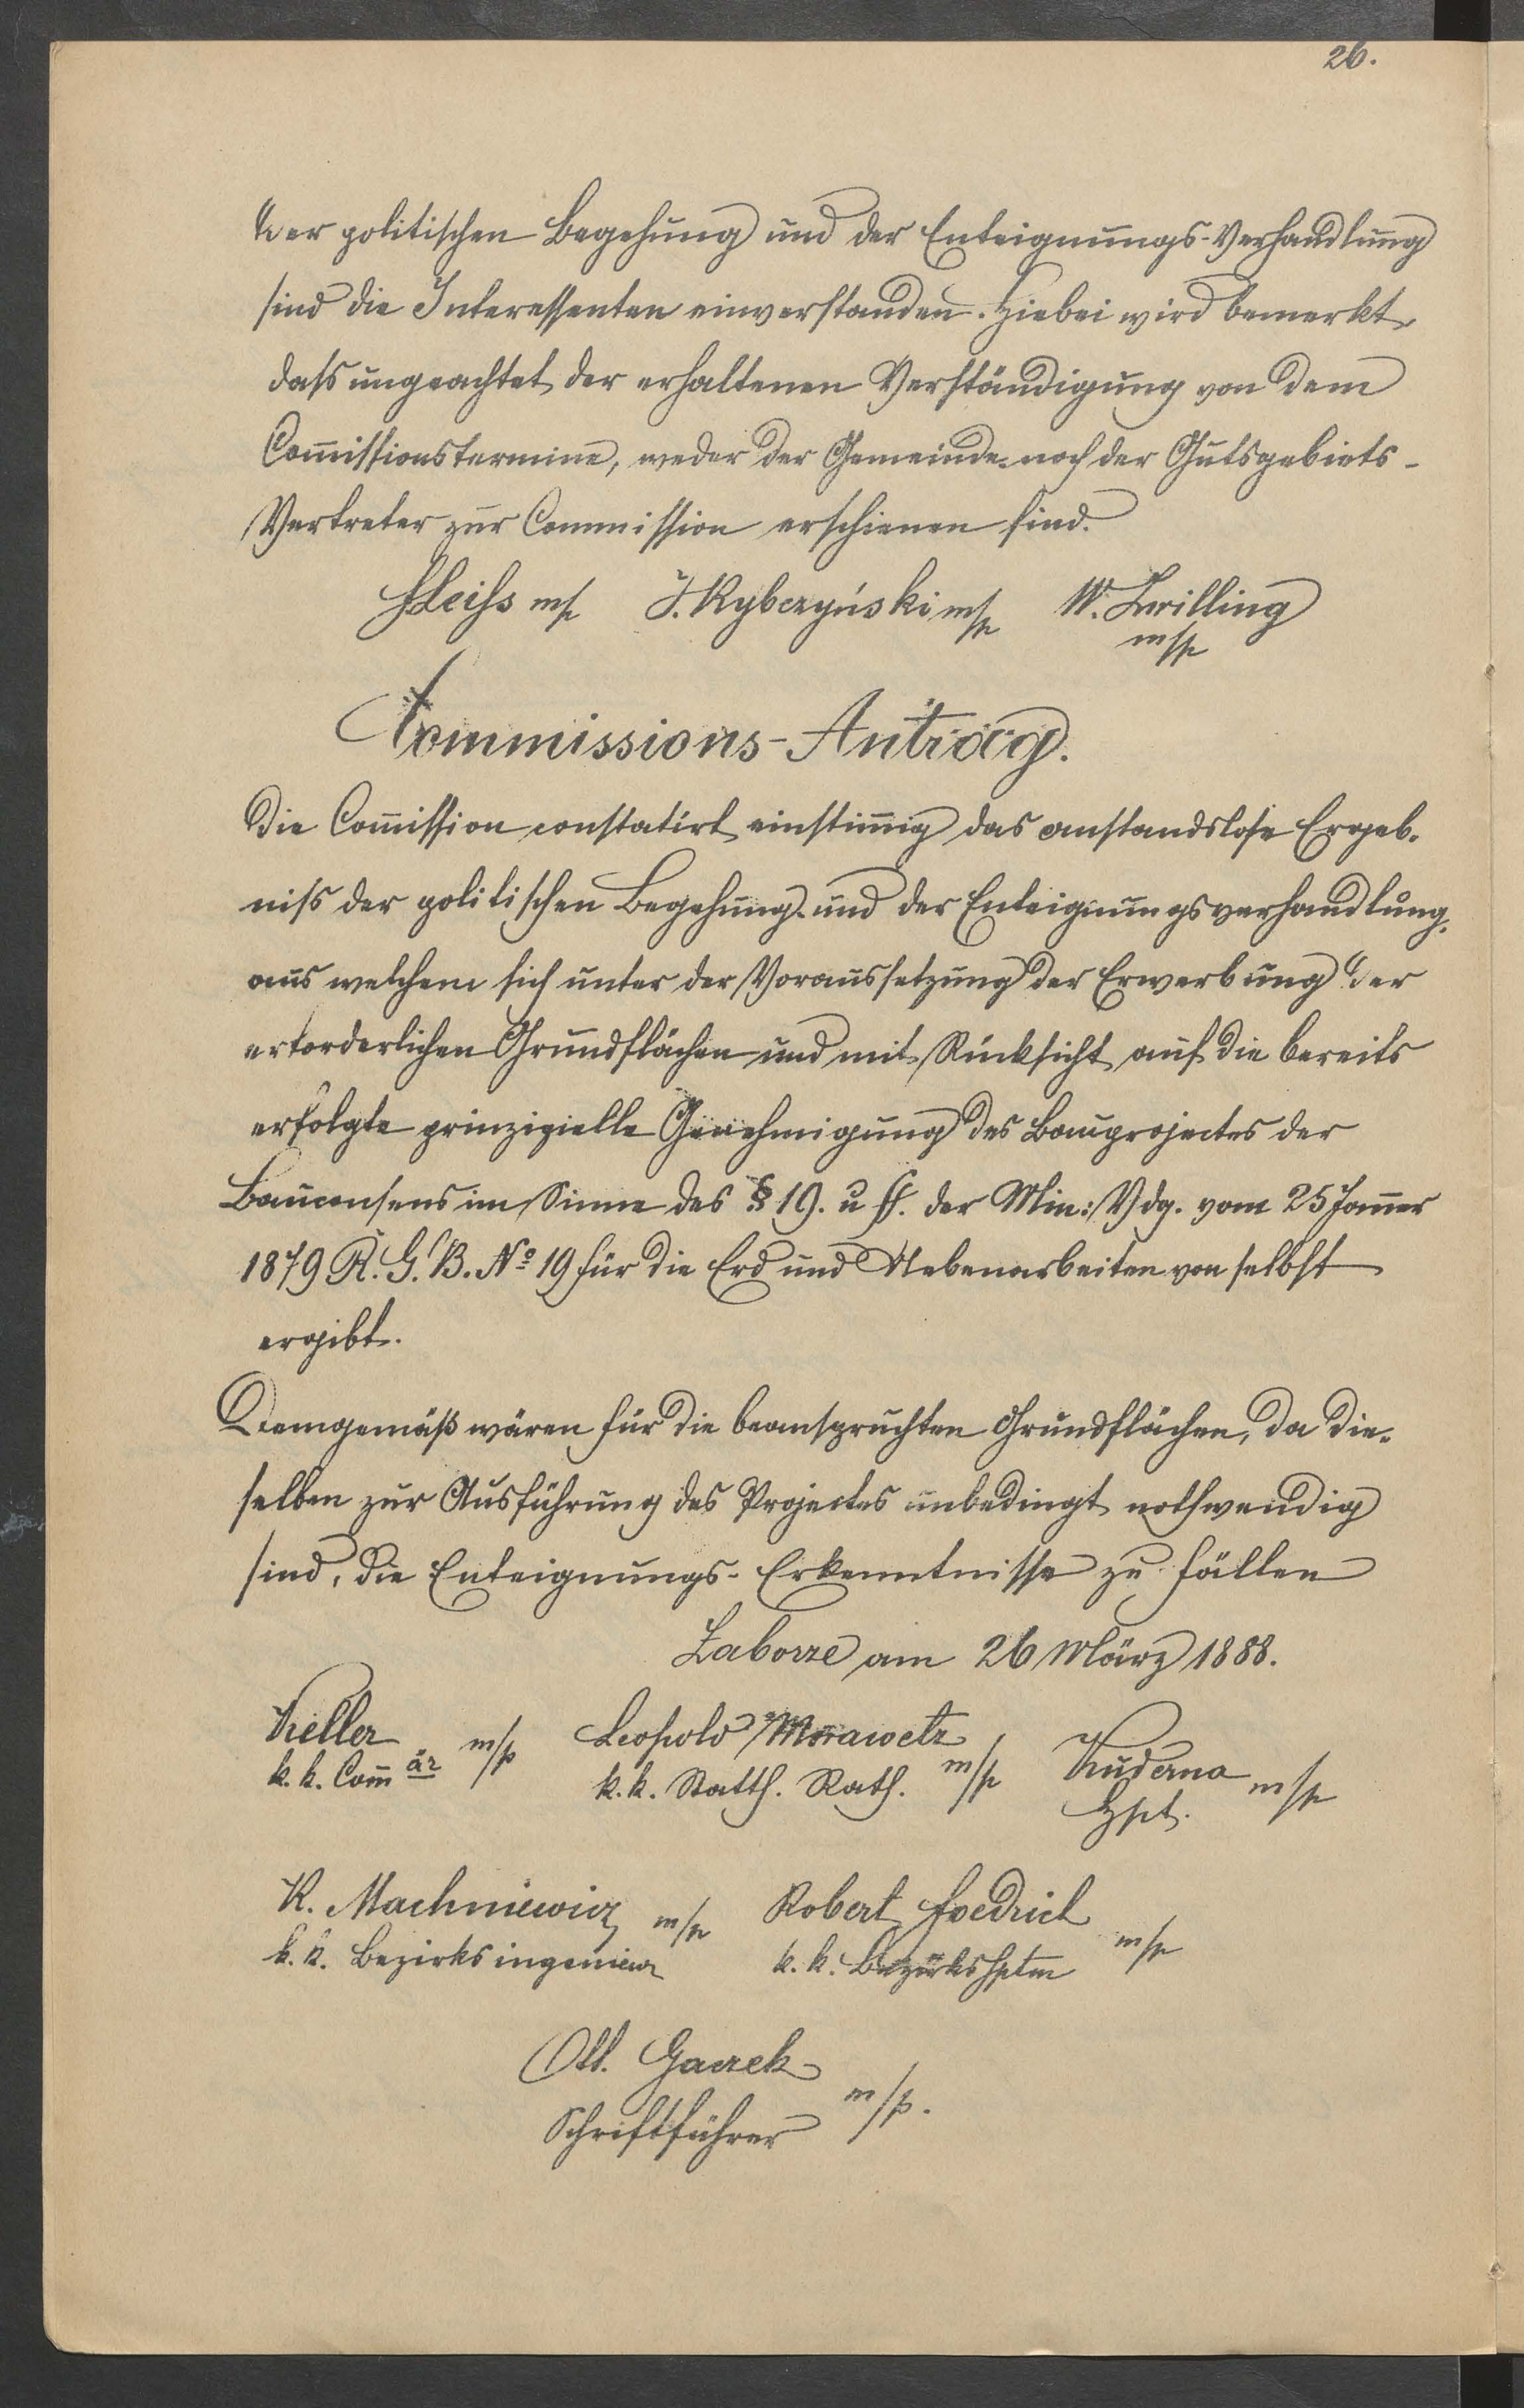 26.
der politischen Begehung und der Enteignungs-Verhandlung
sind die Interessenten einverstanden. Hiebei wird bemerkt,
daſs ungeachtet der erhaltenen Verständigung von dem
Com̄issionstermine, weder der Gemeinde- noch der Gutsgebiets-
Vertreter zur Commission erschienen sind.
J. Rybczyński m/p W. Zwilling
m/p
Commissions-Antrag.
Die Com̄ission constatirt einstim̄ig das anstandslose Ergeb-
niſs der politischen Begehung und der Enteignungsverhandlung,
aus welchem sich unter der Voraussetzung der Erwerbung der
erforderlichen Grundflächen und mit Rücksicht auf die bereits
erfolgte prinzipielle Genehmigung des Bauprojectes der
Bauconsens im Sinne des § 19. u ff. der Min: Vdg. vom 25 Jän̄er
1879 R. G. B. No 19 für die Erd und Nebenarbeiten von selbst
ergibt.
Demgemäß wären für die beanspruchten Grundflächen, da die-
selben zur Ausführung des Projectes unbedingt nothwendig
sind, die Enteignungs-Erkenntnisse zu fällen
Zaborze am 26 März 1888.
Keller m/p Leopold Morawetz m/p Kuderna m/p
k. k. Com̄är k. k. Statth. Rath. Hpt.
K. Machniewicz m/p Robert Foedrich m/p
k. k. Bezirksingenieur k. k. Bezirkshptm
Ott. Gaczek m/p.
Schriftführer